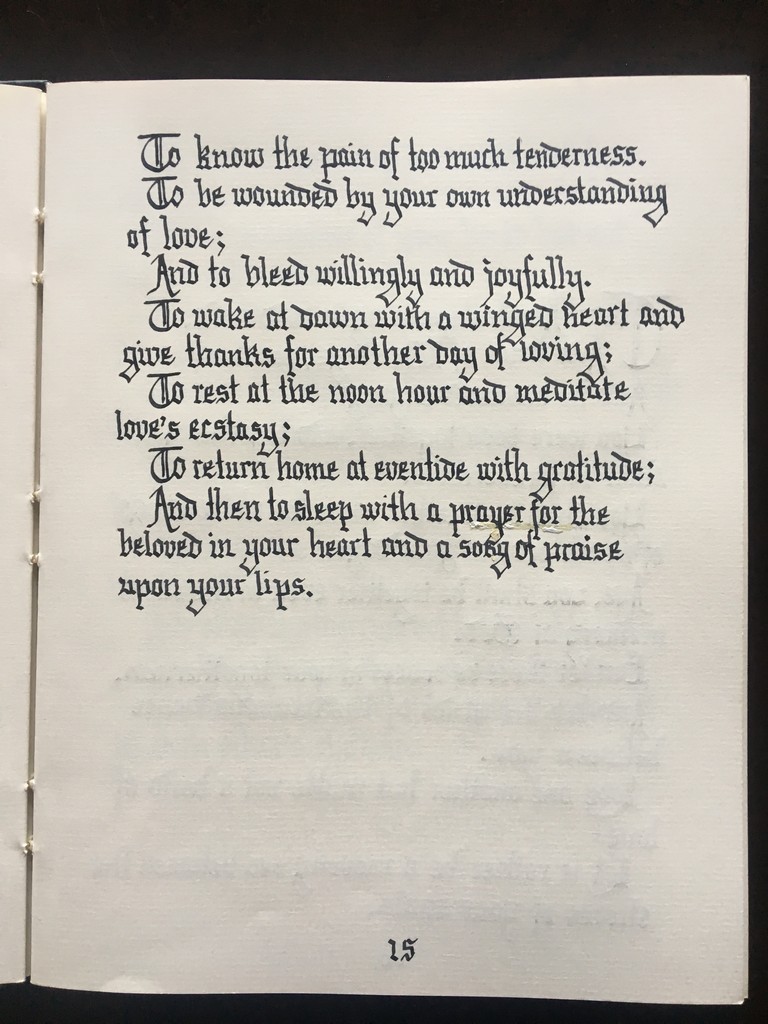 To know the pain of too much tenderness.
To be wounded by your own understanding
of love;
And to bleed willingly and joyfully.
To wake at dawn with a winged heart and
give thanks for another day of loving;
To rest at the noon hour and meditate
love's ecstasy;
To return home at eventide with gratitude;
And then to sleep with a prayer for the
beloved in your heart and a song of praise
upon your lips.
15